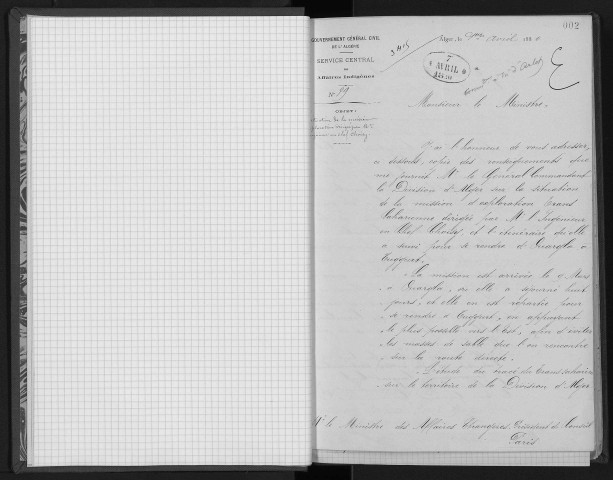 002
GOUVERNEMENT GÉNÉRAL CIVIL
DE L'ALGÉRIE
SERVICE CENTRAL
DES
Affaires Indigènes
N° 89
OBJET:
Alger, le Avril 188
3415
7
AVRIL
Monsieur le Ministre,
J'ai l'honneur de vous adresser,
ci dessous, copie des renseignements que
me fournit Mr. le Général Commandant
la Division d'Alger sur la situation
de la mission d'exploration Trans
Saharienne dirigée par Mr. l'Ingénieur
en Chef Choisy, et l'itinéraire qu'elle
a suivi pour se rendre d'Ouargla à
Tuggurt.
La mission est arrivée le Mars
à Ouargla, où elle a séjourné huit
jours, et elle en est repartie pour
se rendre à Tuggurt, en appuyant
le plus possible vers l'Est, afin d'éviter
les masses de sable que l'on rencontre
sur la route directe.
L'étude du tracé du Transsaharien
sur le territoire de la Division d'Alger
Mr. le Ministre des Affaires Etrangères, Président du Conseil
Paris